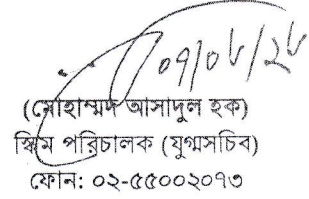 ০৭/০৮/২৮
(মোহাম্মদ আসাদুল হক)
স্কিম পরিচালক (যুগ্মসচিব)
ফোন: ০২-৫৫০০২০৭৩